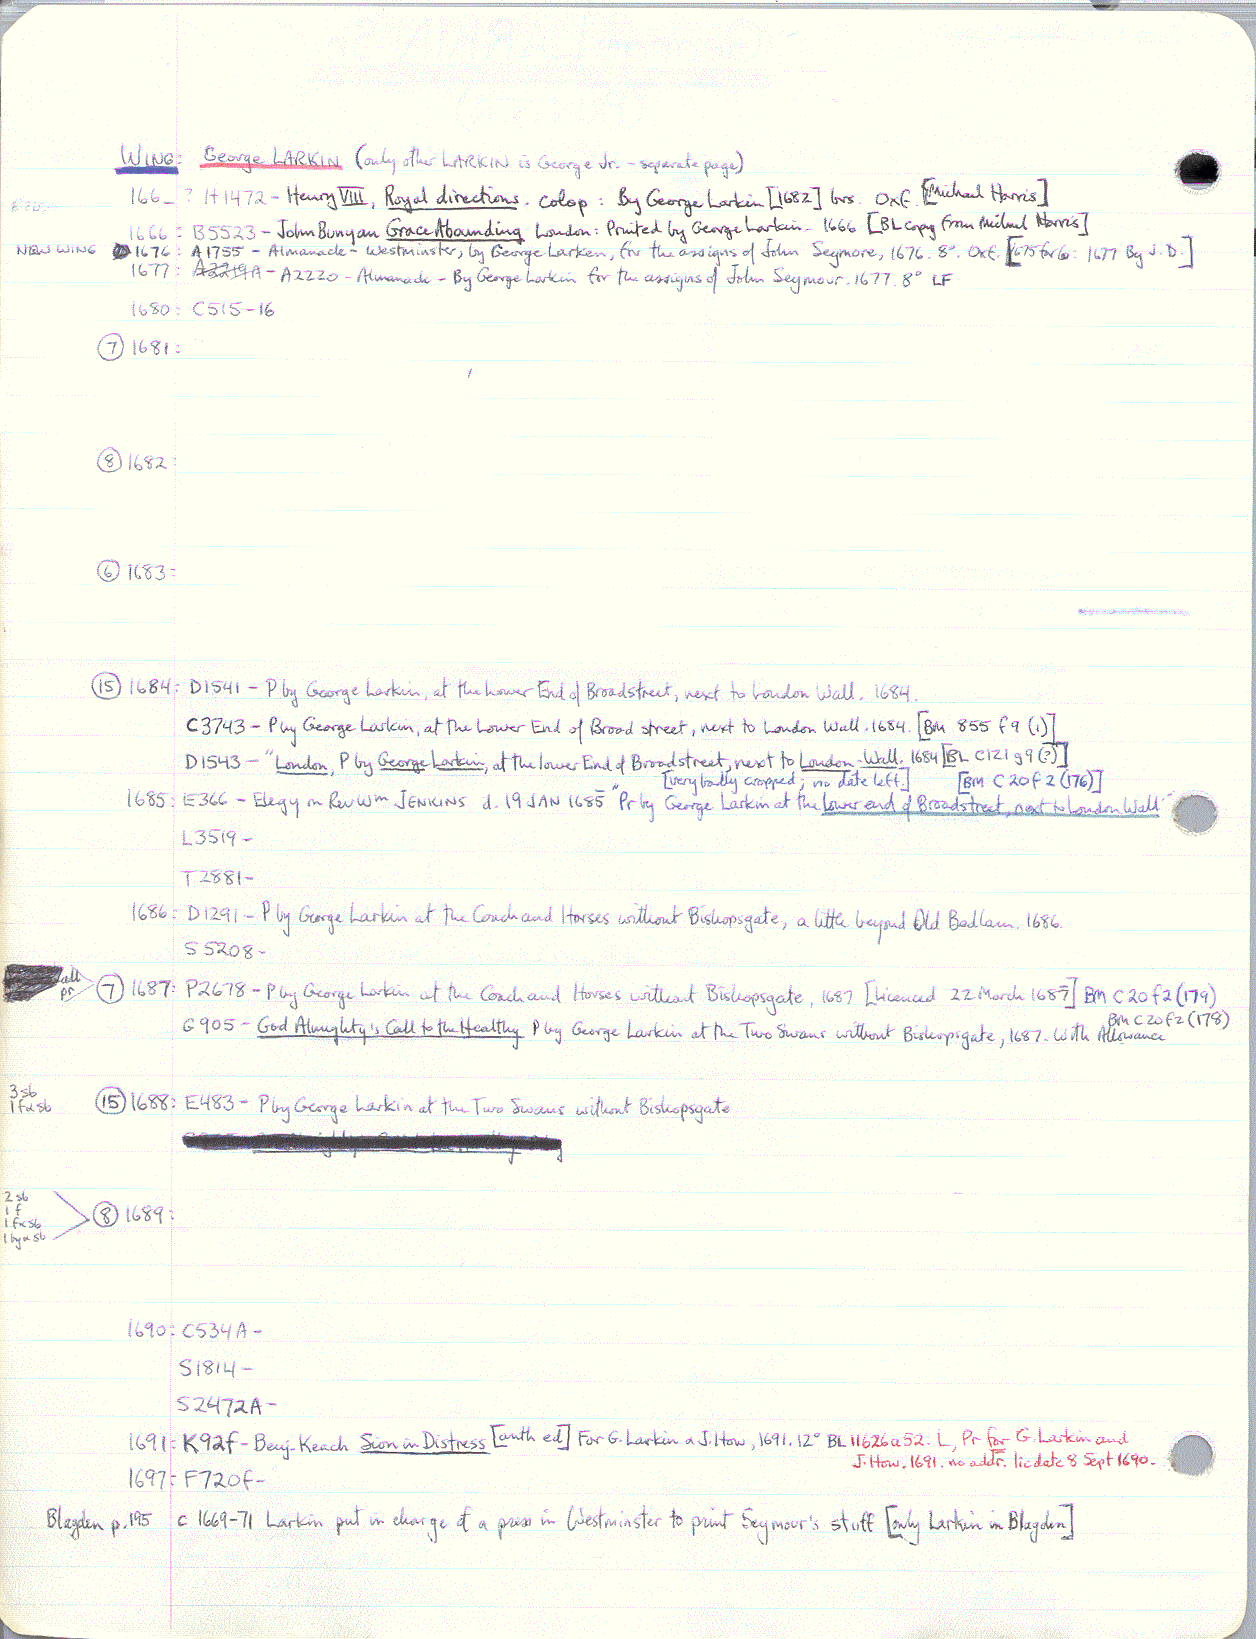 WING: George LARKIN (only other LARKIN is George Jr. - separate page)
166_ ? H1472 - Henry VIII, Royal directions. colop: By George Larkin [1682] brs. Oxf. [Michael Harris]
1666: B5523 - John Bunyan Grace Abounding London: Printed by George Larkin. 1666 [BL copy from Michael Harris]
NEW WING 1676: A1755 - Almanack - Westminster, by George Larken, for the assigns of John Seymore, 1676. 8°. Oxf. [1675 for 6: 1677 By J.D.]
1677: A2219A - A2220 - Almanack - By George Larkin for the assigns of John Seymour. 1677. 8° LF
1680: C515-16
7 1681:
8 1682:
6 1683:
15 1684: D1541 - P by George Larkin, at the Lower End of Broadstreet, next to London Wall. 1684.
C3743 - P by George Larkin, at the Lower End of Broad street, next to London Wall. 1684. [BM 855 f 9 (1)]
D1543 - "London, P by George Larkin, at the lower End of Broadstreet, next to London-Wall. 1684 [BL C121 g9 (?)]
[very badly cropped; no date left] [BM C 20 f 2 (176)]
1685: E366 - Elegy on Rev Wm JENKINS d. 19 JAN 1685 "Pr by George Larkin at the lower end of Broadstreet, next to London Wall"
L3519 -
T2881 -
1686: D1291 - P by George Larkin at the Coach and Horses without Bishopsgate, a little beyond Old Bedlam. 1686.
S5208 -
all pr 7 1687: P2678 - P by George Larkin at the Coach and Horses without Bishopsgate, 1687 [Licenced 22 March 1687] BM C 20 f 2 (179)
BM C 20 f 2 (178)
G905 - God Almighty's Call to the Healthy P by George Larkin at the Two Swans without Bishopsgate, 1687. With Allowance
3 sb
1 f x sb
15 1688: E483 - P by George Larkin at the Two Swans without Bishopsgate
2 sb
1 f
1 f x sb
1 by x sb
8 1689:
1690: C534A -
S1814 -
S2472A -
1691: K92f - Benj. Keach Sion in Distress [anth ed] For G. Larkin a J. How, 1691. 12° BL 11626 a 52. L, Pr for G. Larkin and
J. How. 1691. no addr. lic date 8 Sept 1690.
1697: F720f -
Blagden p. 195 c 1669-71 Larkin put in charge of a press in Westminster to print Seymour's stuff [only Larkin in Blagden]